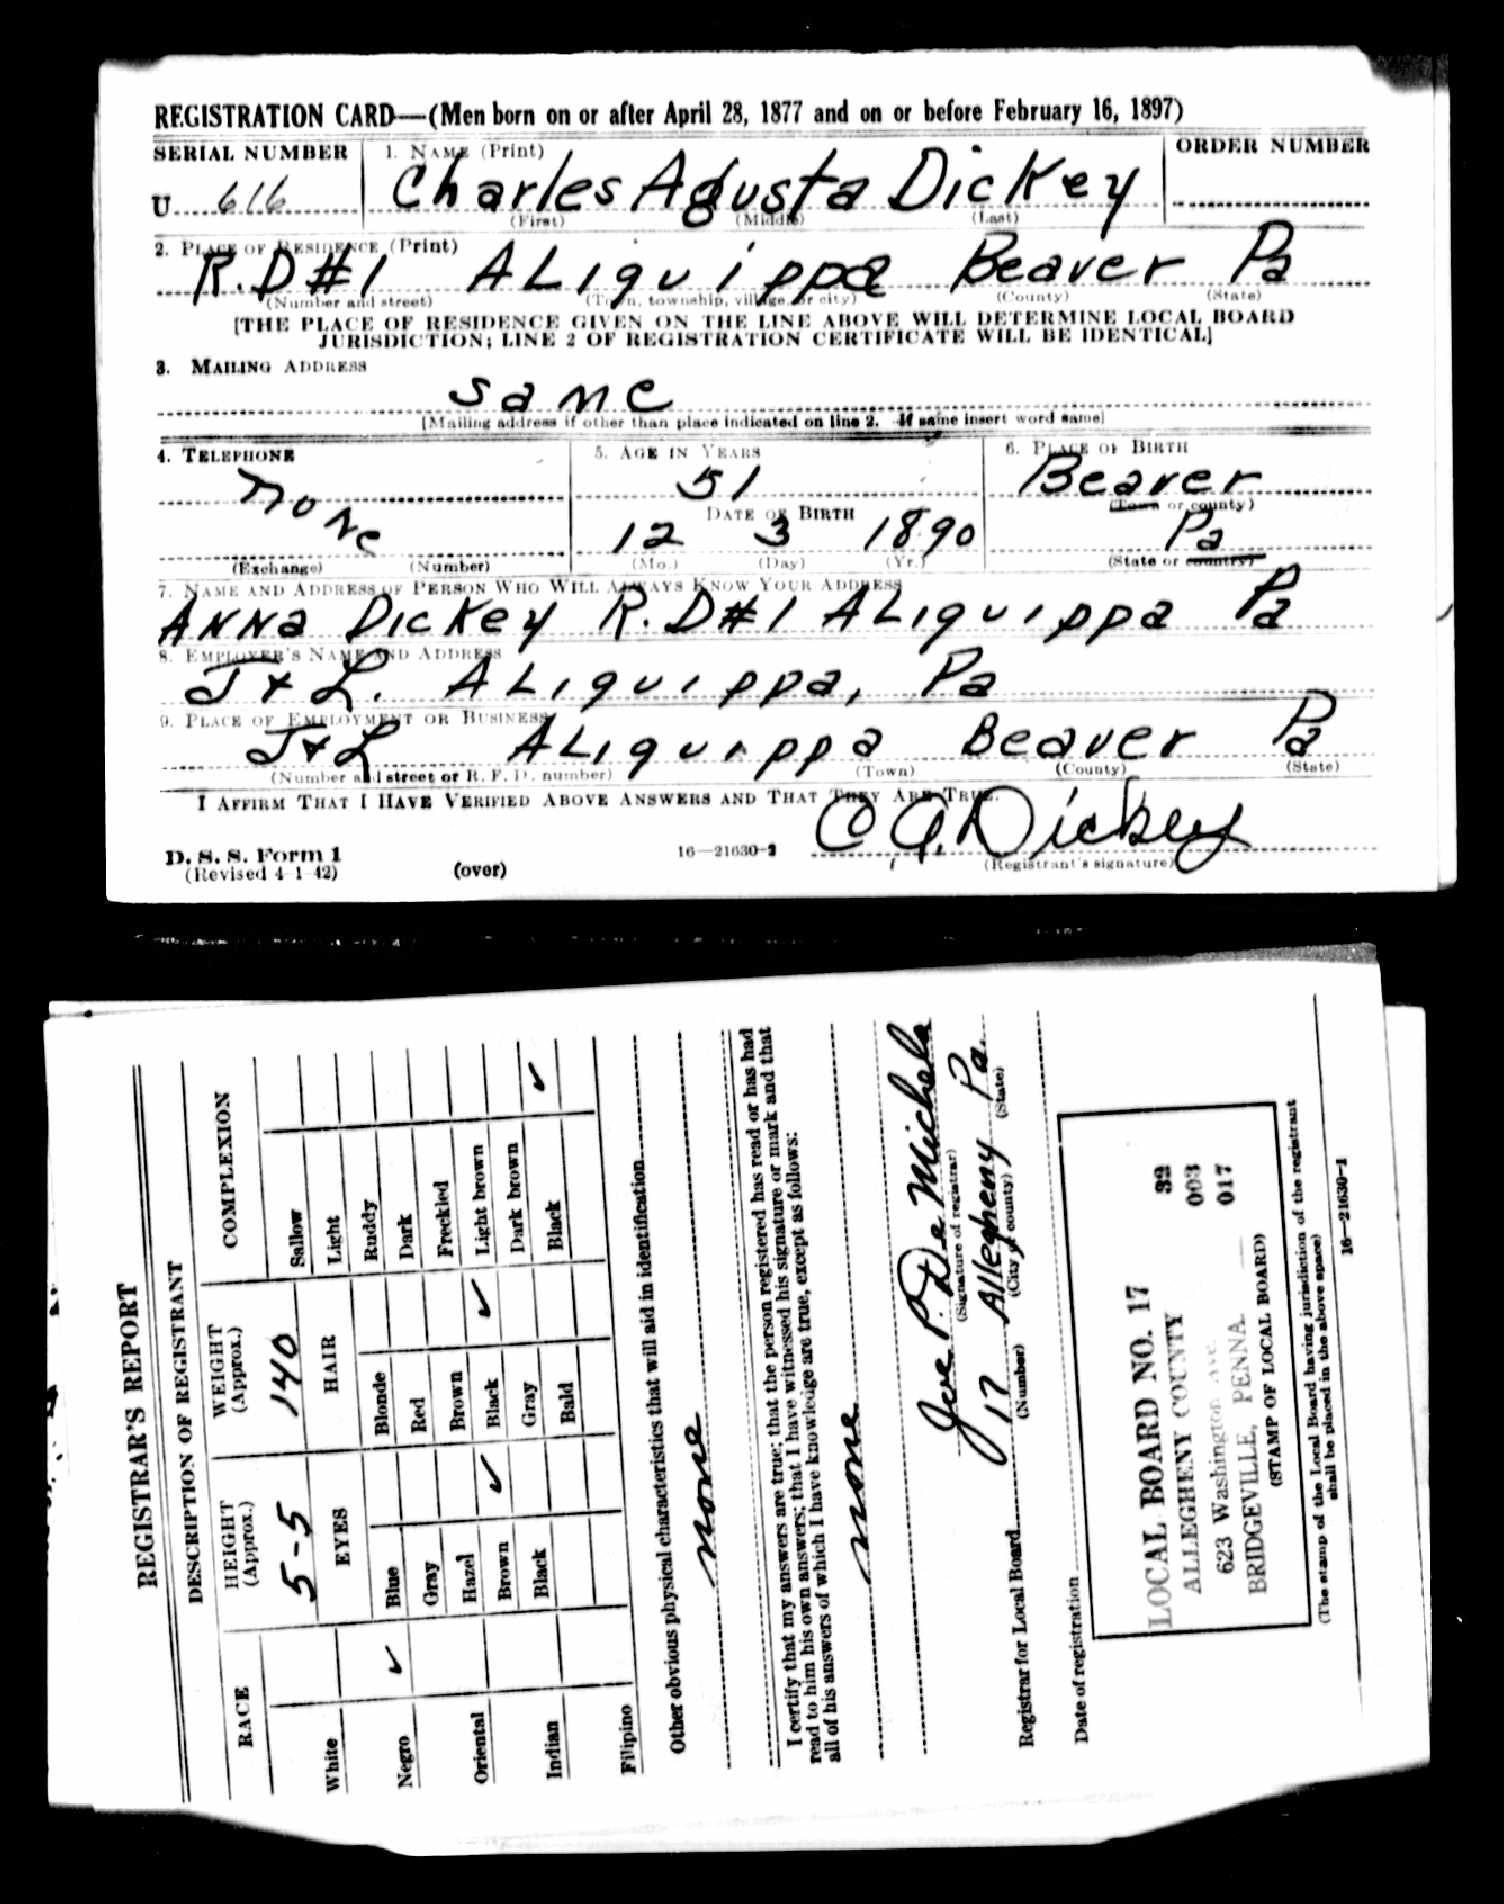 REGISTRATION CARD—(Men born on or after April 28, 1877 and on or before February 16, 1897)
SERIAL NUMBER 1. NAME (Print) ORDER NUMBER
U 616 Charles Agusta Dickey
(First) (Middle) (Last)
2. PLACE OF RESIDENCE (Print)
R.D#1 ALiquippa Beaver Pa
(Number and street) (Town, township, village, or city) (County) (State)
[THE PLACE OF RESIDENCE GIVEN ON THE LINE ABOVE WILL DETERMINE LOCAL BOARD
JURISDICTION; LINE 2 OF REGISTRATION CERTIFICATE WILL BE IDENTICAL]
3. MAILING ADDRESS
same
[Mailing address if other than place indicated on line 2. If same insert word same]
4. TELEPHONE 5. AGE IN YEARS 6. PLACE OF BIRTH
none 51 Beaver
DATE OF BIRTH (Town or county)
12 3 1890 Pa
(Exchange) (Number) (Mo.) (Day) (Yr.) (State or country)
7. NAME AND ADDRESS OF PERSON WHO WILL ALWAYS KNOW YOUR ADDRESS
ANNa Dickey R.D#1 ALiquippa Pa
8. EMPLOYER'S NAME AND ADDRESS
J & L. ALiquippa, Pa
9. PLACE OF EMPLOYMENT OR BUSINESS
J & L ALiquippa Beaver Pa
(Number and street or R. F. D. number) (Town) (County) (State)
I AFFIRM THAT I HAVE VERIFIED ABOVE ANSWERS AND THAT THEY ARE TRUE.
C A. Dickey
D. S. S. Form 1
(Revised 4-1-42) (over) 16—21630-2 (Registrant's signature)
REGISTRAR'S REPORT
DESCRIPTION OF REGISTRANT
RACE HEIGHT (Approx.) WEIGHT (Approx.) COMPLEXION
5-5 140
EYES HAIR
White Blue Blonde Sallow
Negro ✓ Gray Red Light
Oriental Hazel Brown Ruddy
Indian Brown ✓ Black ✓ Dark
Filipino Black Gray Freckled
Bald Light brown
Dark brown ✓
Black
Other obvious physical characteristics that will aid in identification
none
I certify that my answers are true; that the person registered has read or has had
read to him his own answers; that I have witnessed his signature or mark and that
all of his answers of which I have knowledge are true, except as follows:
none
Joe P. De Michela
(Signature of registrar)
Registrar for Local Board 17 Allegheny Pa.
(Number) (City or county) (State)
Date of registration
LOCAL BOARD NO. 17 32
ALLEGHENY COUNTY 003
623 Washington Ave. 017
BRIDGEVILLE, PENNA.
(STAMP OF LOCAL BOARD)
(The stamp of the Local Board having jurisdiction of the registrant
shall be placed in the above space)
16—21630-1